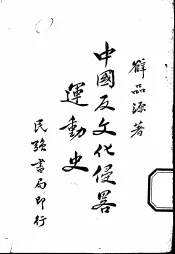 薛品源著
中國反文化侵畧
運動史
民強書局印行